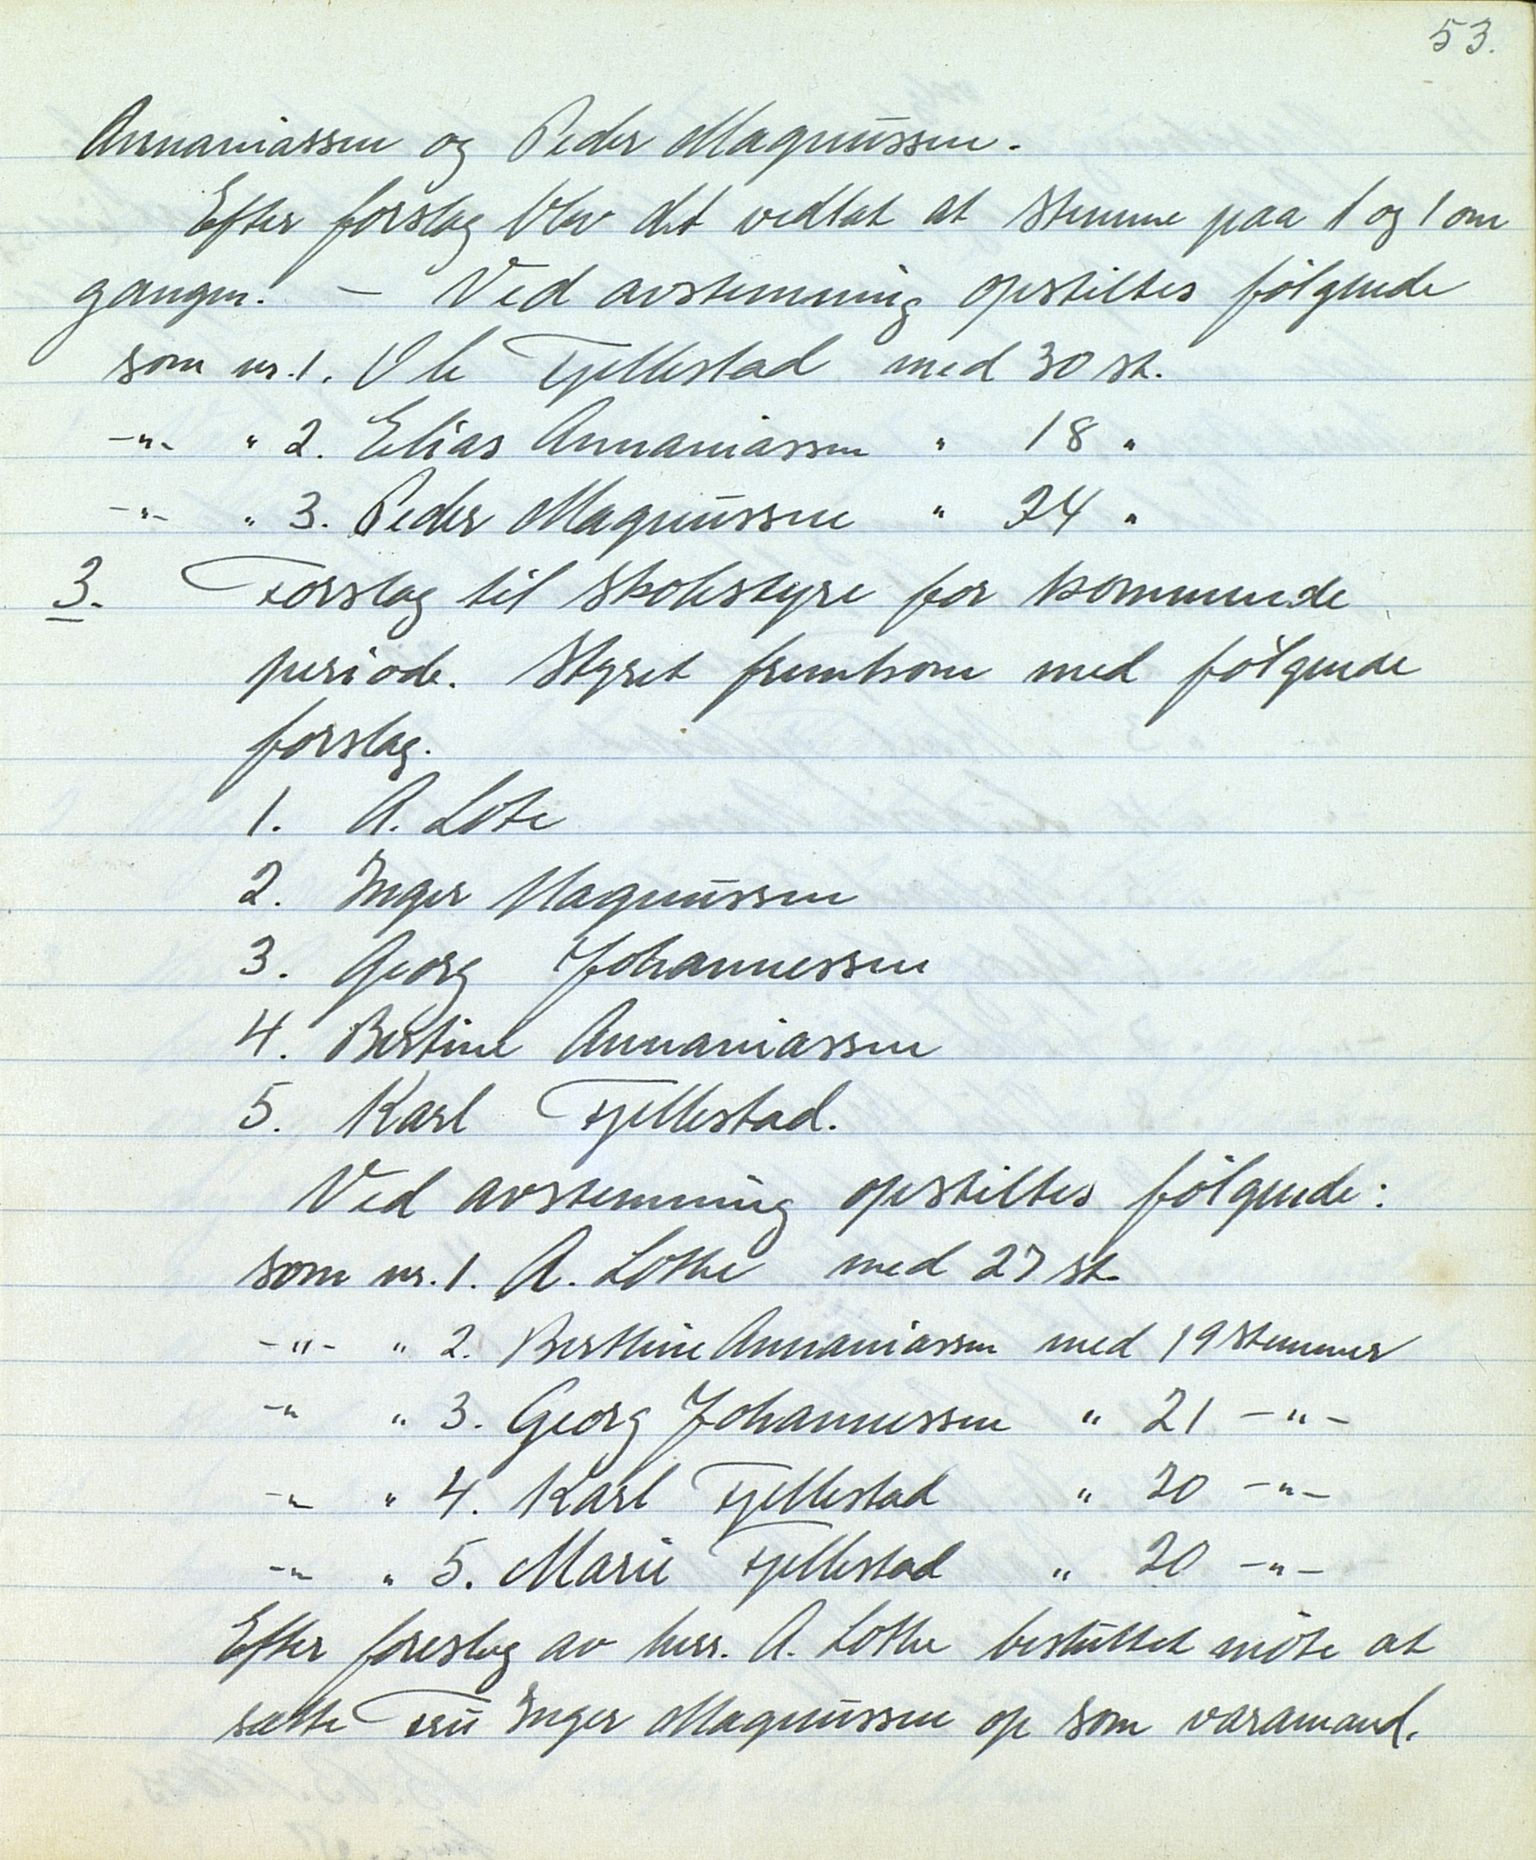 53.
Annaniassen og Peder Magnussen.
Efter forslag blev det vedtat at stemme paa 1 og 1 om
gangen. — Ved avstemning opstiltes følgende
som nr. 1. Ole Fjellestad med 30 st.
-"- " 2. Elias Annaniassen " 18 "
-"- " 3. Peder Magnussen " 24 "
3. Forslag til skolestyre for kommende
periode. Styret fremkom med følgende
forslag.
1. A. Lote
2. Inger Magnussen
3. Georg Johannessen
4. Bertine Annaniassen
5. Karl Fjellestad.
Ved avstemning opstiltes følgende:
som nr. 1. A. Lothe med 27 st.
-"- " 2. Berthine Annaniassen med 19 stemmer
-" " 3. Georg Johannessen " 21 -"-
-" " 4. Karl Fjellestad " 20 -"-
-" " 5. Marie Fjellestad " 20 -"-
Efter foreslag av herr. A. Lothe besluttet møte at
sætte Fru Inger Magnussen op som varamand.